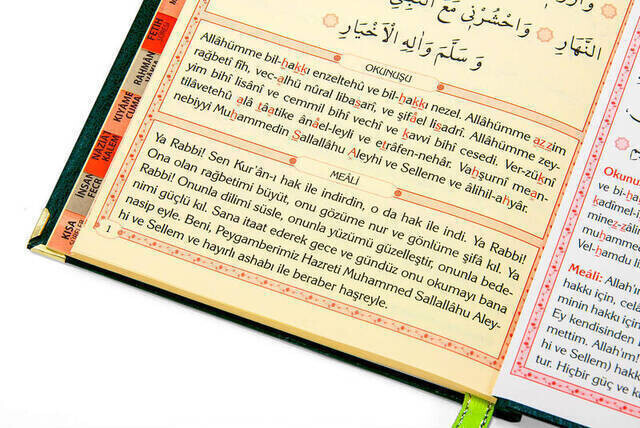 النَّهَارِ وَاحْشُرْنِي مَعَ النَّبِيِّ
وَسَلَّمَ وَاٰلِهِ الْاَخْيَارِ
OKUNUŞU
Allâhümme bil-hakkı enzeltehû ve bil-hakkı nezel. Allâhümme azzim
rağbetî fîh, vec-alhu nûral libasarî, ve şifâel lisadrî. Allâhümme zey-
yim bihî lisânî ve cemmil bihî vechî ve kavvi bihî cesedî. Ver-züknî
tilâvetehû alâ tâatike ânâel-leyli ve etrâfen-nehâr. Vahşurnî mean-
nebiyyi Muhammedin Sallallâhu Aleyhi ve Selleme ve âlihil-ahyâr.
MEÂLİ
Ya Rabbi! Sen Kur'ân-ı hak ile indirdin, o da hak ile indi. Ya Rabbi!
Ona olan rağbetimi büyüt, onu gözüme nur ve gönlüme şifâ kıl. Ya
Rabbi! Onunla dilimi süsle, onunla yüzümü güzelleştir, onunla bede-
nimi güçlü kıl. Sana itaat ederek gece ve gündüz onu okumayı bana
nasip eyle. Beni, Peygamberimiz Hazreti Muhammed Sallallâhu Aley-
hi ve Sellem ve hayırlı ashabı ile beraber haşreyle.
1
FETİH
RAHMAN
KIYAME
CUMA
NAZİAT
KALEM
İNSAN
FECR
KISA
Okunu
ve bi-ha
kadimeli
minez-zâ
muhamm
Vel-hamdu li
Meâli: Allah'ı
hakkı için, cela
minin hakkı iç
Ey kendisinden
mettim. Allah'ım!
hi ve Sellem) hakk
tur. Hiçbir güç ve k